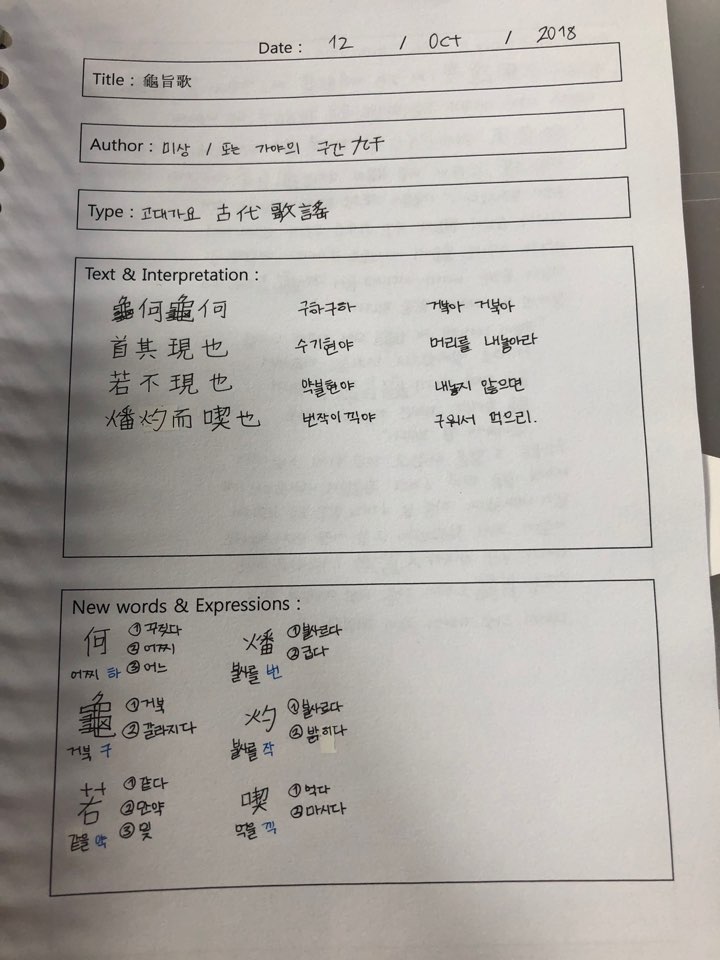 Date : 12 / Oct / 2018
Title : 龜旨歌
Author : 미상 / 또는 가야의 구간 九干
Type : 고대가요 古代歌謠
Text & Interpretation :
龜何龜何 구하구하 거북아 거북아
首其現也 수기현야 머리를 내놓아라
若不現也 약불현야 내놓지 않으면
燔灼而喫也 번작이끽야 구워서 먹으리.
New words & Expressions :
何 ①꾸짖다 燔 ①불사르다
②어찌 ②굽다
어찌 하 ③어느 불사를 번
龜 ①거북 灼 ①불사르다
②갈라지다 ②밝히다
거북 구 불사를 작
若 ①같다 喫 ①먹다
②만약 ②마시다
같을 약 ③및 먹을 끽